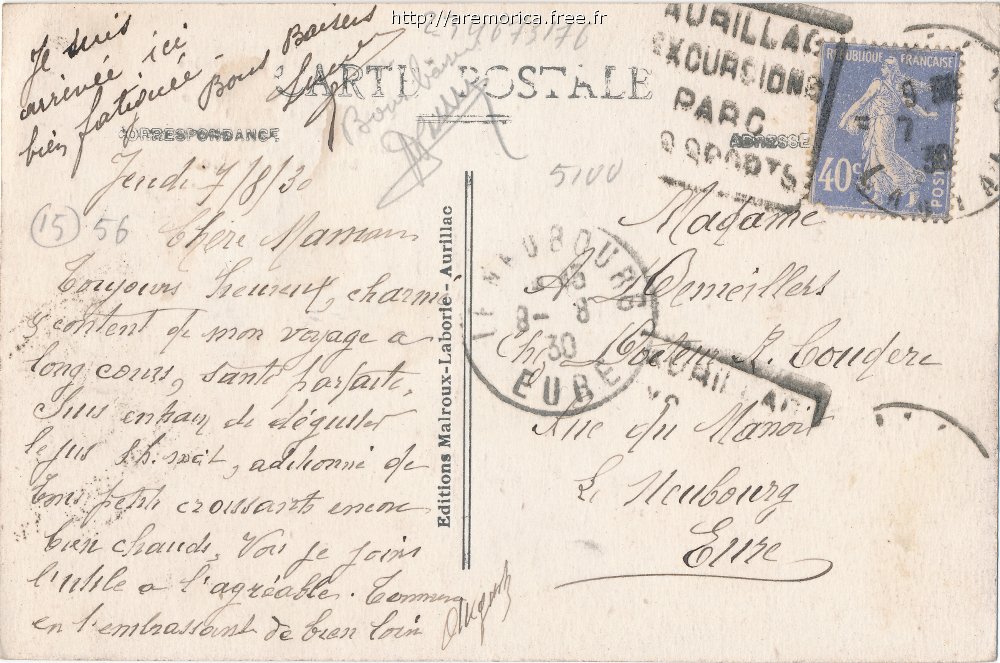 http://aremorica.free.fr
Je suis
arrivée ici
bien fatiguée.
Bons Baisers
CARTE POSTALE
CORRESPONDANCE
ADRESSE
AURILLAC
EXCURSIONS
PARC
SPORTS
REPUBLIQUE FRANÇAISE
40c
POSTES
9
7
30
5100
Jeudi 7/8/30
15 56
Chère Maman
Toujours heureux, charmé
& content de mon voyage a
long cours, santé parfaite,
Suis entrain de déguster
le jus, additionné de
bons petits croissants encore
bien chauds, Vois je joins
l'utile a l'agréable.
en t'embrassant de bien loin
Editions Malroux-Laborie - Aurillac
LE NEUBOURG
8 - 8
30
EURE
Madame
A
Docteur R. Couderc
Rue du Manoir
Le Neubourg
Eure
AURILLAC